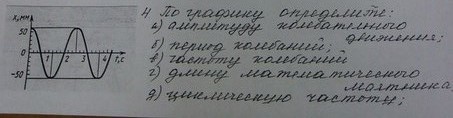 x, мм
50
0
-50
1 2 3 4 t, с
4 По графику определите:
а) амплитуду колебательного движения;
б) период колебаний;
в) частоту колебаний
г) длину математического маятника;
д) циклическую частоту;